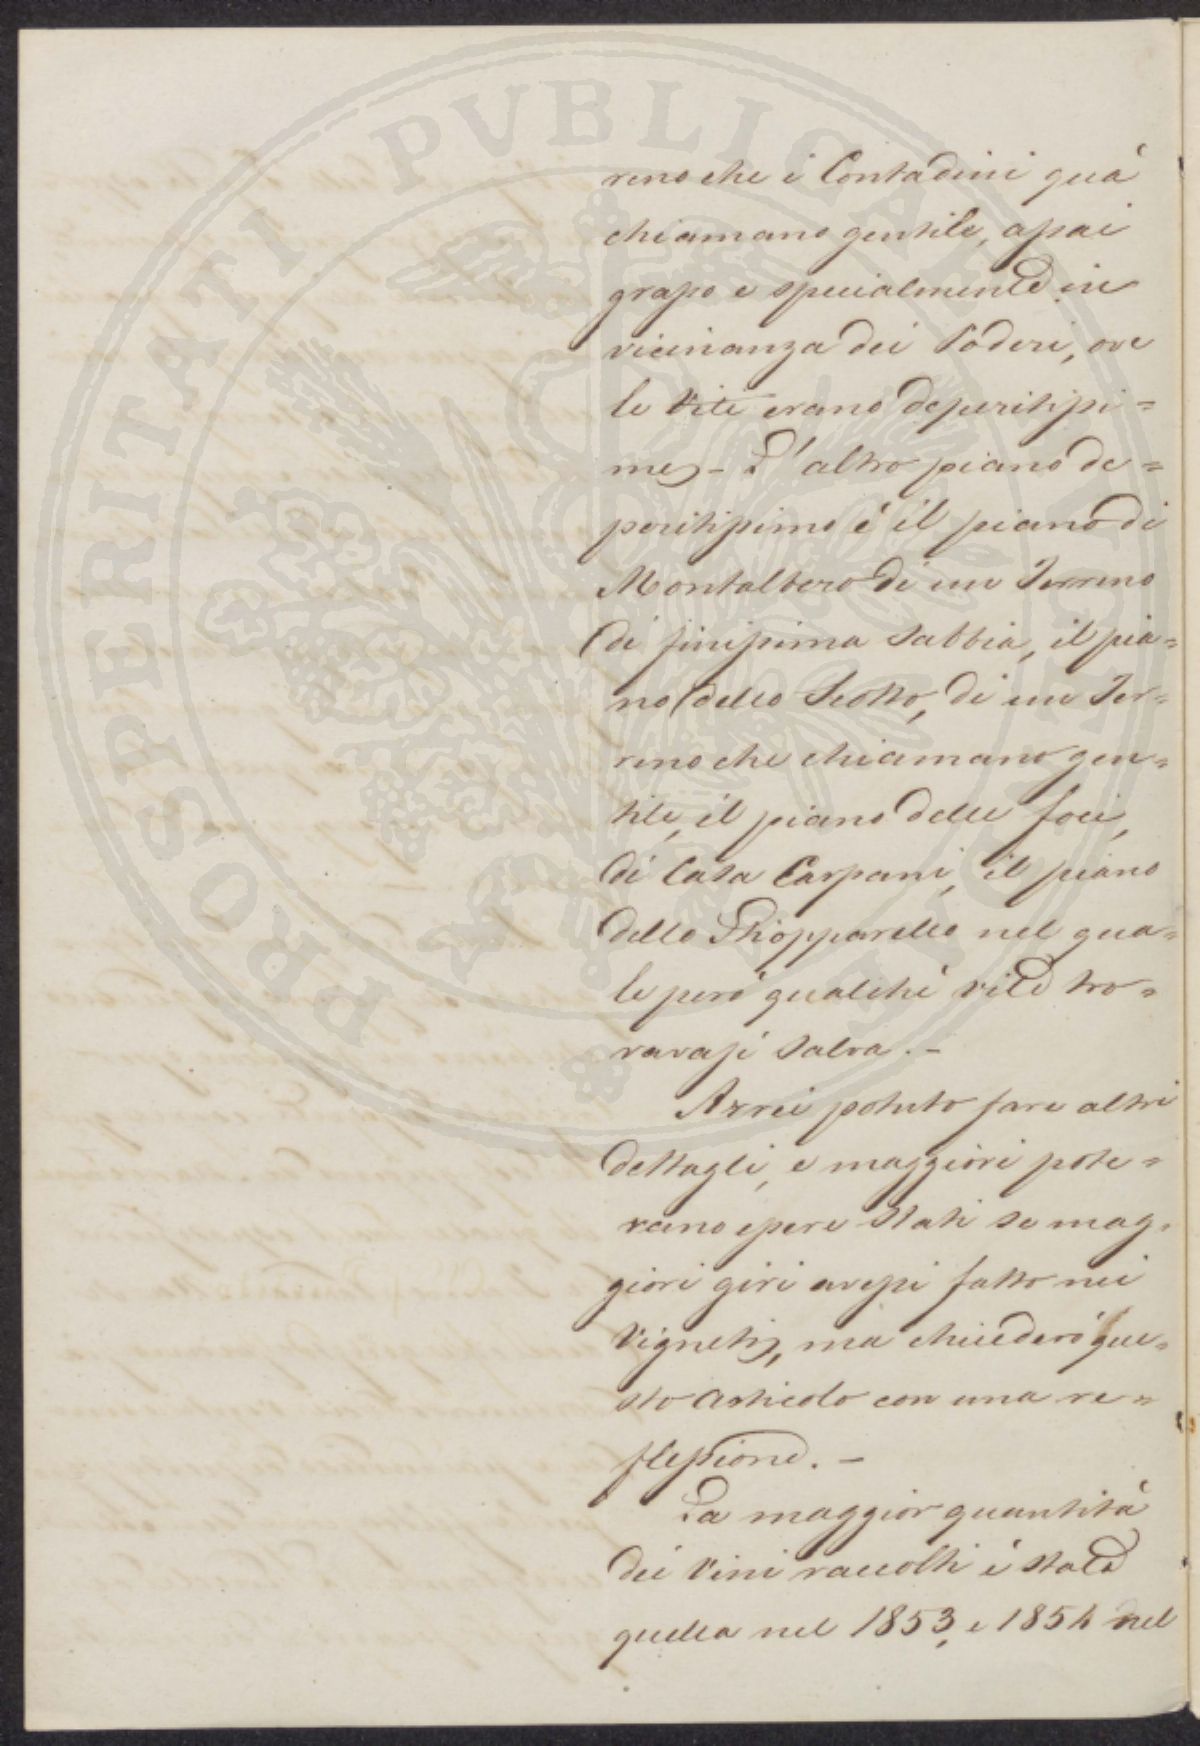 PROSPERITATI PVBLICAE
reno che i Contadini quà
chiamano gentile, assai
grasso e specialmente in
vicinanza dei Poderi, ove
le Viti erano deperitissi=
me, – L'altro piano de=
peritissimo è il piano di
Montalbero di un Terreno
di finissima Sabbia, il pia=
no dello Scotto, di un Ter=
reno che chiamano gen=
tile, il piano delle foci,
di Casa Carpani, il piano
dello Schiopparello nel qua=
le però qualche vite tro=
vavasi Salva. –
Avrei potuto fare altri
dettagli, e maggiori pote=
vano essere Stati se mag=
giori giri avessi fatto nei
Vigneti, ma chiuderò que=
sto articolo con una re=
flessione. –
La maggior quantità
dei Vini raccolti è Stata
quella nel 1853, e 1854 nel